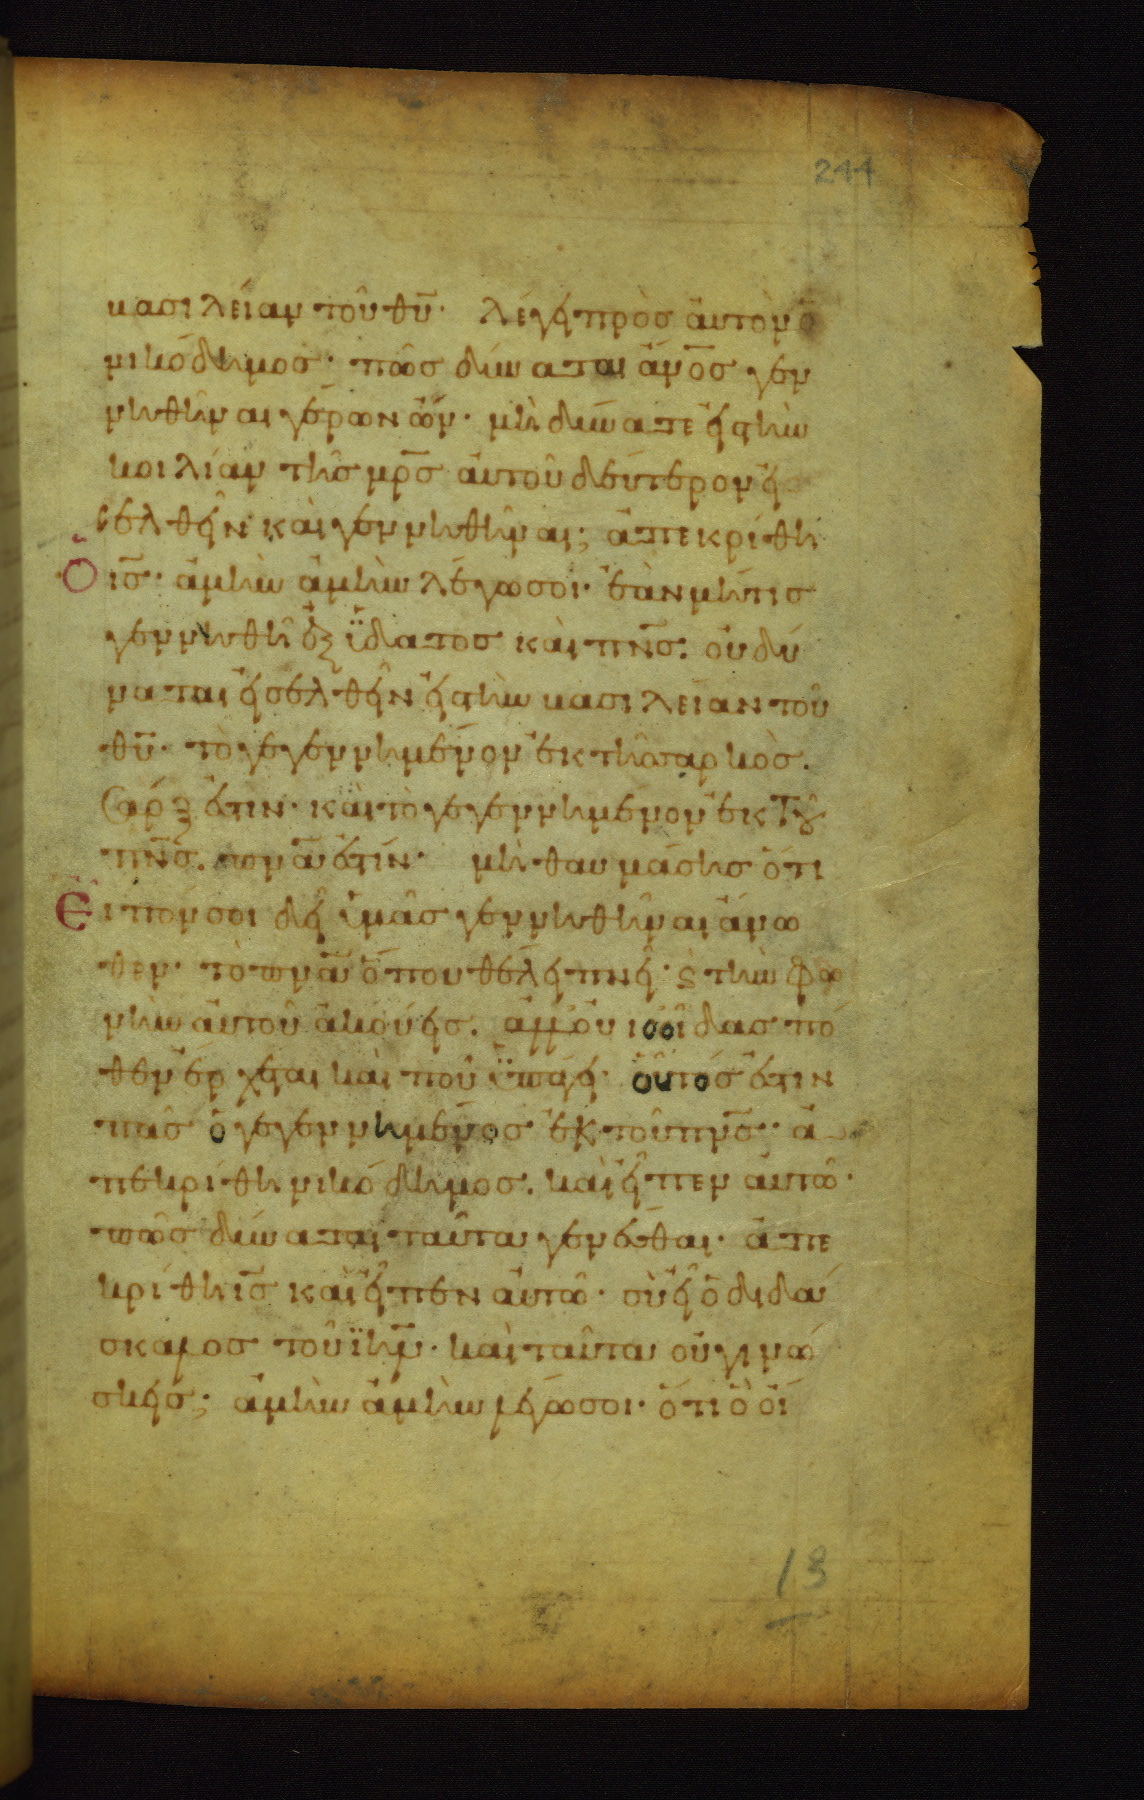 244
βασιλείαν τοῦ θ̅υ̅· λέγει πρὸς αὐτὸν ὁ
νικόδημος· πῶς δύναται ἄν̅ο̅ς̅ γεν
νηθῆναι γέρων ὤν· μὴ δύναται εἰς τὴν
κοιλίαν τῆς μ̅ρ̅ς̅ αὐτοῦ δεύτερον εἰ
σελθεῖν καὶ γεννηθῆναι; ἀπεκρίθη
ὁ ι̅ς̅· ἀμὴν ἀμὴν λέγω σοι· ἐὰν μή τις
γεννηθῆ ἐξ ὕδατος καὶ π̅ν̅ς̅· οὐ δύ
ναται εἰσελθεῖν εἰς τὴν βασιλείαν τοῦ
θ̅υ̅· τὸ γεγεννημένον ἐκ τῆς σαρκὸς.
Σάρξ ἐστιν· καὶ τὸ γεγεννημένον ἐκ τοῦ
π̅ν̅ς̅. π̅ν̅α̅ ἐστίν· μὴ θαυμάσης ὅτι
εἶπόν σοι δεῖ ὑμᾶς γεννηθῆναι ἄνω
θεν· τὸ π̅ν̅α̅ ὅπου θέλει πνεῖ· ϗ τὴν φω
νὴν αὐτοῦ ἀκούεις. ἀλλ' οὐκ οἶδας πό
θεν ἔρχεται καὶ ποῦ ὑπάγει· οὕτος ἐστιν
πᾶς ὁ γεγεννημένος ἐκ τοῦ π̅ν̅ς̅· ἀ
πεκρίθη νικόδημος. καὶ εἶπεν αὐτῶ·
πῶς δύναται ταῦτα γενέσθαι· ἀπε
κρίθη ι̅ς̅ καὶ εἶπεν αὐτῶ· σὺ εἶ ὁ διδά
σκαλος τοῦ ϊ̅η̅λ̅· καὶ ταῦτα οὐ γινώ
σκεις; ἀμὴν ἀμὴν λέγω σοι· ὅτι ὃ οἴ
13